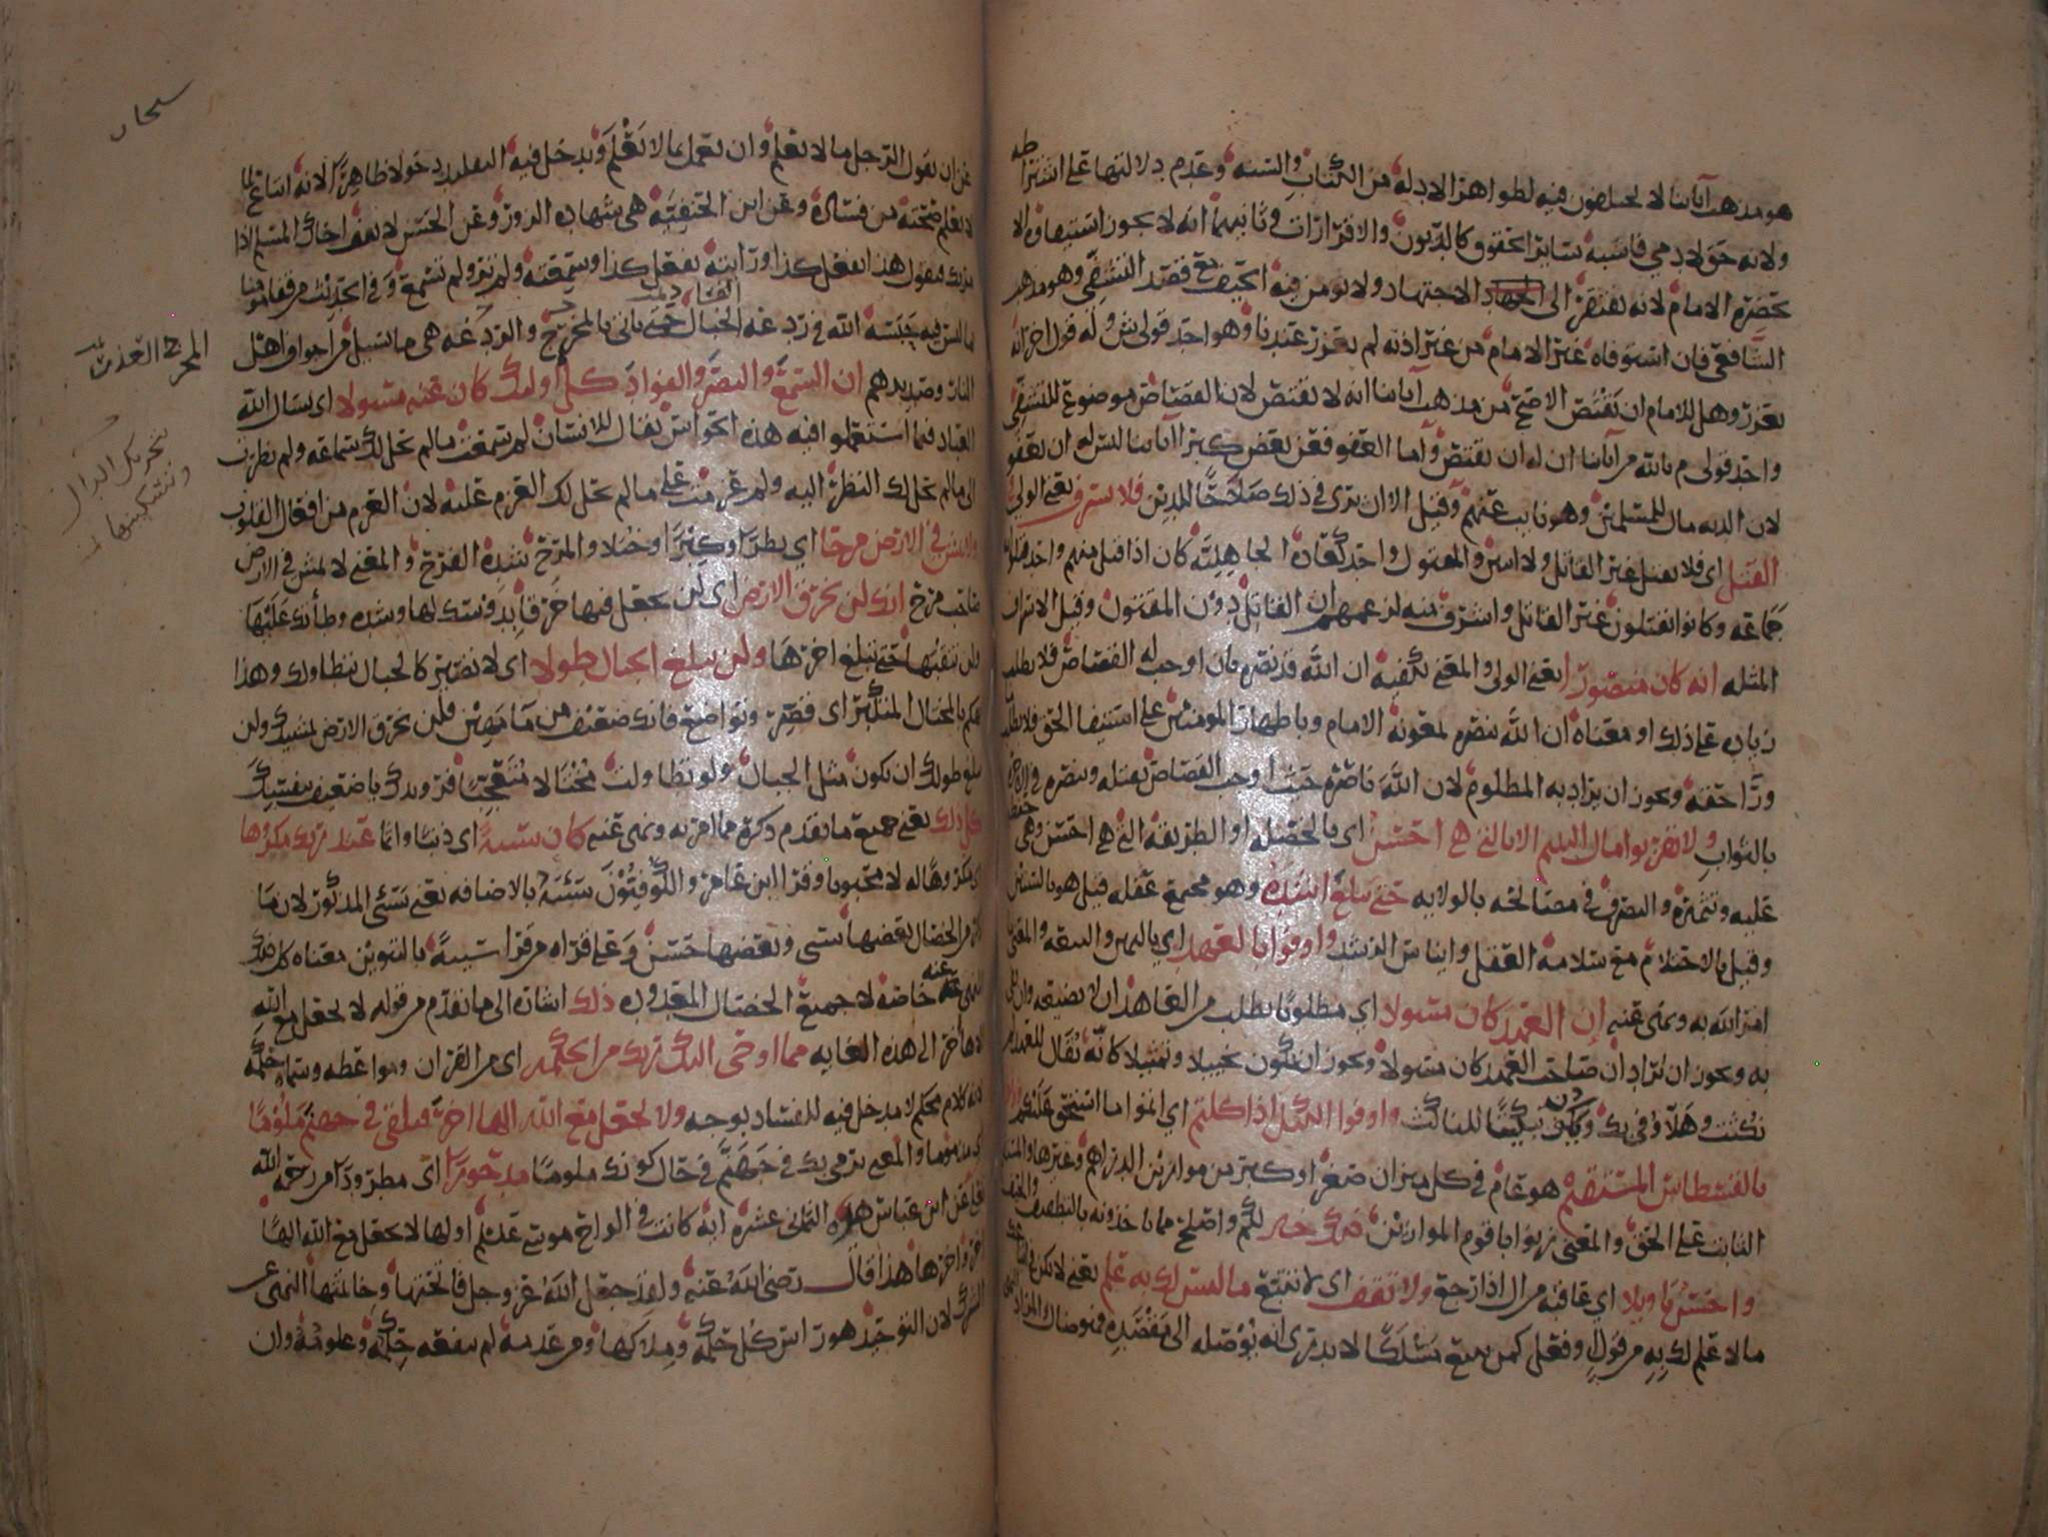 هو مذهب آبائنا لا يختلفون فيه لظواهر الادلة من الكتاب والسنة وعدم دلالتها على اشتراطه
ولانه حق لادمي فاشبه سائر الحقوق كالديون والاقرارات وثانيهما انه لا يجوز استيفاوه الا
بحضرة الامام لانه يفتقر الى الاجتهاد ولا يومن فيه الحيف مع قصد التشفي وهو مذهب
الشافعي فان استوفاه غير الامام من غير اذنه لم يعزر عندنا وهو احد قولي ش وله قول اخر انه
يعزر وهل للامام ان يقتص الاصح من مذهب آبائنا انه لا يقتص لان القصاص موضوع للتشفي
واحد قولي م بالله من آبائنا ان له ان يقتص واما العفو فعن بعض كبرا آبائنا ليس له ان يعفو
لان الدية مال للمسلمين وهو نايب عنهم وقيل الا ان يرى في ذلك صلاحا للدين فلا يسرف يعني الولي
القتل اي فلا يقتل غير القاتل ولا اثنين والمقتول واحد كعادة الجاهلية كان اذا قتل منهم واحد قتلوا
جماعة وكانوا يقتلون غير القاتل واشرف منه لزعمهم ان القاتل دون المقتول وقيل الاسراف
المثلة انه كان منصورا يعني الولي والمعنى يكفيه ان الله قد نصره بان اوجب له القصاص فلا يطلب
زيادة على ذلك او معناه ان الله ينصره بمعونة الامام وباظهار المومنين على استيفا الحق فلا يطلب
ورا حقه ويجوز ان يراد به المظلوم لان الله ناصره حيث اوجب القصاص بقتله وينصره في الاخرة
بالثواب ولا تقربوا مال اليتيم الا بالتي هي احسن اي بالخصلة او الطريقة التي هي احسن وهي حفظه
عليه وتثميره والتصرف في مصالحه بالولاية حتى يبلغ اشده وهو مجتمع عقله قيل هو بالسنين
وقيل بالاحتلام مع سلامة العقل وايناس الرشد واوفوا بالعهد اي باليمين والبيعة والمعنى
امر الله به ونهى عنه ان العهد كان مسولا اي مطلوبا يطلب من المعاهد ان لا يضيعه وان يفي
به ويجوز ان يراد ان صاحب العهد كان مسولا ويجوز ان يكون تخييلا وتمثيلا كانه يقال للعهد لم
نكثت وهلا وفي بك تبكيتا للناكث واوفوا الكيل اذا كلتم اي اتموا ما استحق عليكم
بالقسطاس المستقيم هو عام في كل ميزان صغر او كبر من موازين الدراهم وغيرها
الثابت على الحق والمعنى زنوا يا قوم الموازين ذلك خير لكم واصلح مما تاخذونه بالتطفيف
واحسن تاويلا اي عاقبة من ال اذا رجع ولا تقف اي لا تتبع ما ليس لك به علم يعني لا تكن في اتباعك
مالا علم لك به من قول وفعل كمن يتبع مسلكا لا يدري انه يوصله الى مقصده
سبحان
عن ان يقول الرجل ما لا يعلم وان يعمل بما لا يعلم ويدخل فيه التقليد دخولا ظاهرا لانه اتباع لما
لا يعلم صحته من فساده وعن ابن الحنفية هي شهادة الزور وعن الحسن لا تقف اخاك المسلم اذا
مر بك فتقول هذا يفعل كذا او رايته يفعل كذا او سمعته ولم تر ولم تسمع وفي الحديث من قفا مومنا
بما ليس فيه حبسه الله في ردغة الخبال حتى ياتي بالمخرج والردغة هي ما يسيل من اجواف اهل
النار وصديدهم ان السمع والبصر والفواد كل اولئك كان عنه مسولا اي يسال الله
العباد فيما استعملوا فيه هذه الحواس يقال للانسان لم سمعت مالم يحل لك سماعه ولم نظرت
الى مالم يحل لك النظر اليه ولم عزمت على مالم يحل لك العزم عليه لان العزم من افعال القلوب
ولا تمش في الارض مرحا اي بطرا وكبرا وخيلا والمرح شدة الفرح والمعنى لا تمش في الارض
صاحب مرح انك لن تخرق الارض اي لن تجعل فيها خرقا بدوسك لها وشدة وطأتك عليها
ولن تنقبها حتى تبلغ اخرها ولن تبلغ الجبال طولا اي لا تصير كالجبال بتطاولك وهذا
تهكم بالمختال المتكبر اي قصر وتواضع فانك ضعيف من ما مهين فلن تخرق الارض بمشيك ولن
يبلغ طولك ان يكون مثل الجبال ولو تطاولت
كل ذلك يعني جميع ما تقدم ذكره مما امر به ونهى عنه كان سيئة اي ذنبا واثما عند ربك مكروها
اي مكروها له لا محبوبا وقرا ابن عامر والكوفيون سيئه بالاضافة يعني سيئ المذكور لان ما
ذكر من الخصال بعضها سيئ وبعضها حسن وعلى قراءة من قرا سيئة بالتنوين معناه كل ذلك
المنهي عنه خاصة لا جميع الخصال المعدودة ذلك اشارة الى ما تقدم من قوله لا تجعل مع الله
الها آخر الى هذه الغاية مما اوحى اليك ربك من الحكمة اي من القران ومواعظه وسماه حكمة
لانه كلام محكم لا مدخل فيه للفساد بوجه ولا تجعل مع الله الها اخر فتلقى في جهنم ملوما
اي مذموما والمعنى يرمى بك في جهنم في حال كونك ملوما مدحورا اي مطرودا من رحمة الله
وعن ابن عباس هذه الثماني عشرة آية كانت في الواح موسى عليلم اولها لا تجعل مع الله الها
آخر واخرها هذا قال رضي الله عنه ولقد جعل الله عز وجل فاتحتها وخاتمتها النهي عن
الشرك لان التوحيد هو راس كل حكمة وملاكها ومن عدمه لم تنفعه حكمة وعلومه وان